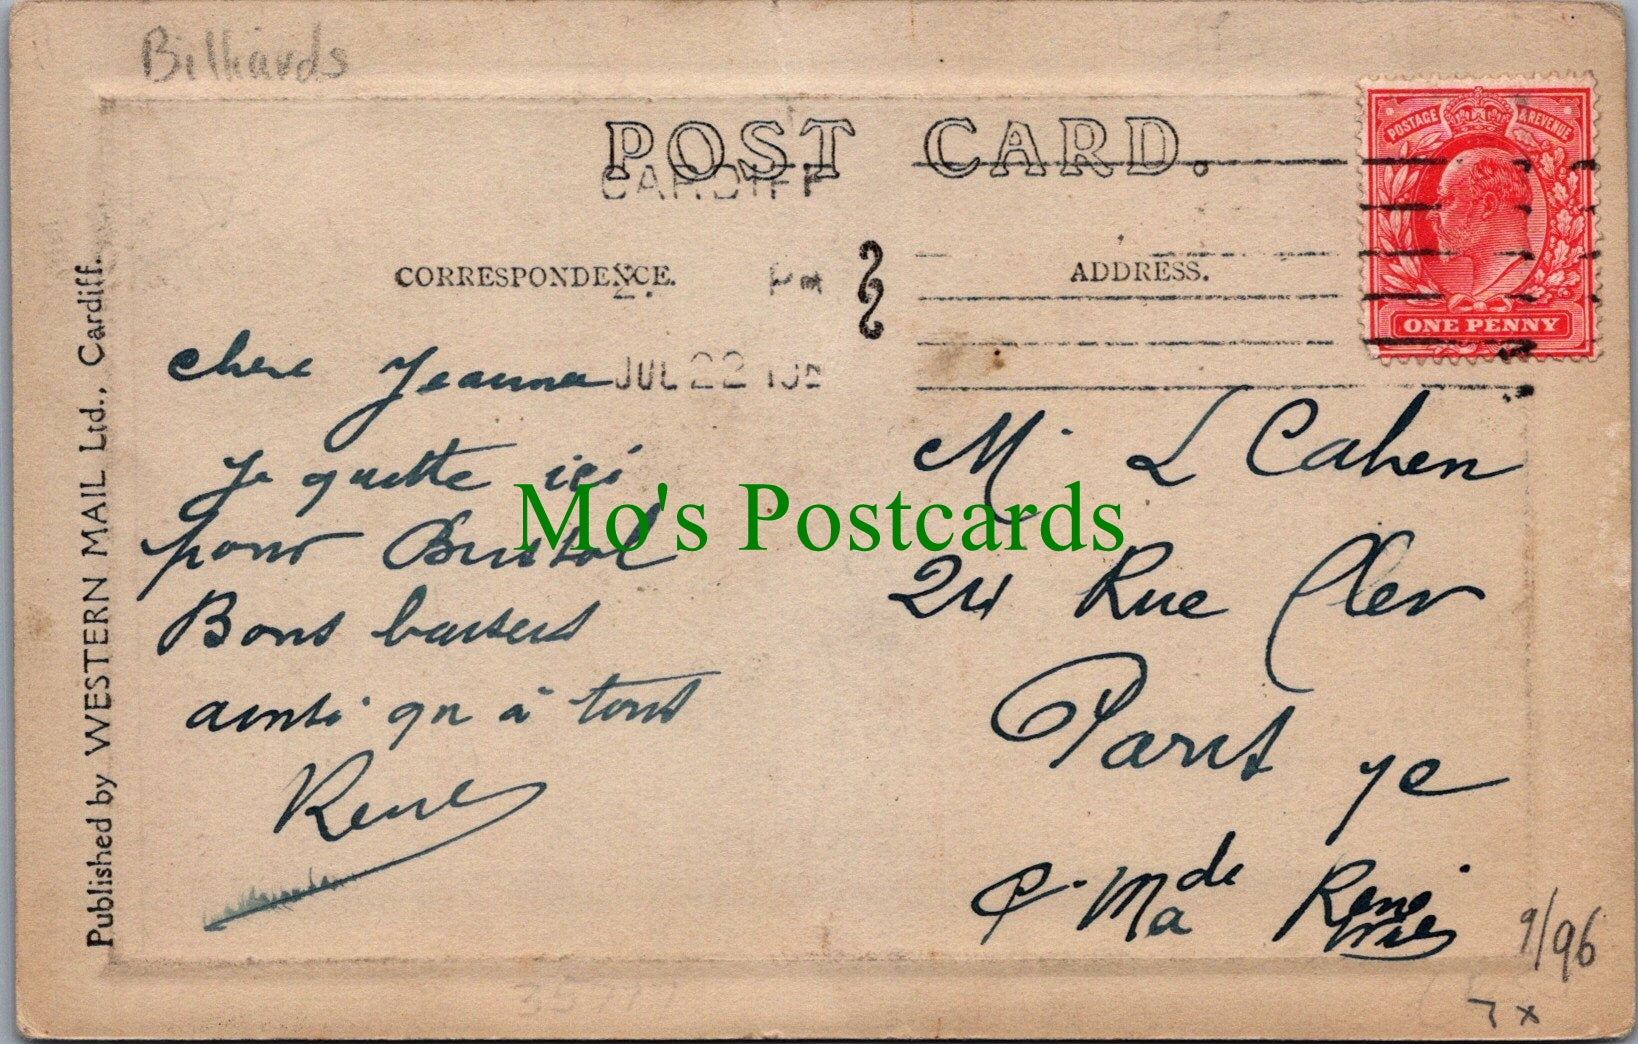 Billiards
POST CARD.
CARDIFF
CORRESPONDENCE.
PM
ADDRESS.
JUL 22
POSTAGE & REVENUE
ONE PENNY
Published by WESTERN MAIL Ltd., Cardiff.
chere Jeanne
Je quitte ici
pour Bristol
Bons baisers
ainsi qu a tous
René
M. L Cahen
24 Rue Cler
Paris 7e
P. Made René
Mo's Postcards
9/96
7 x